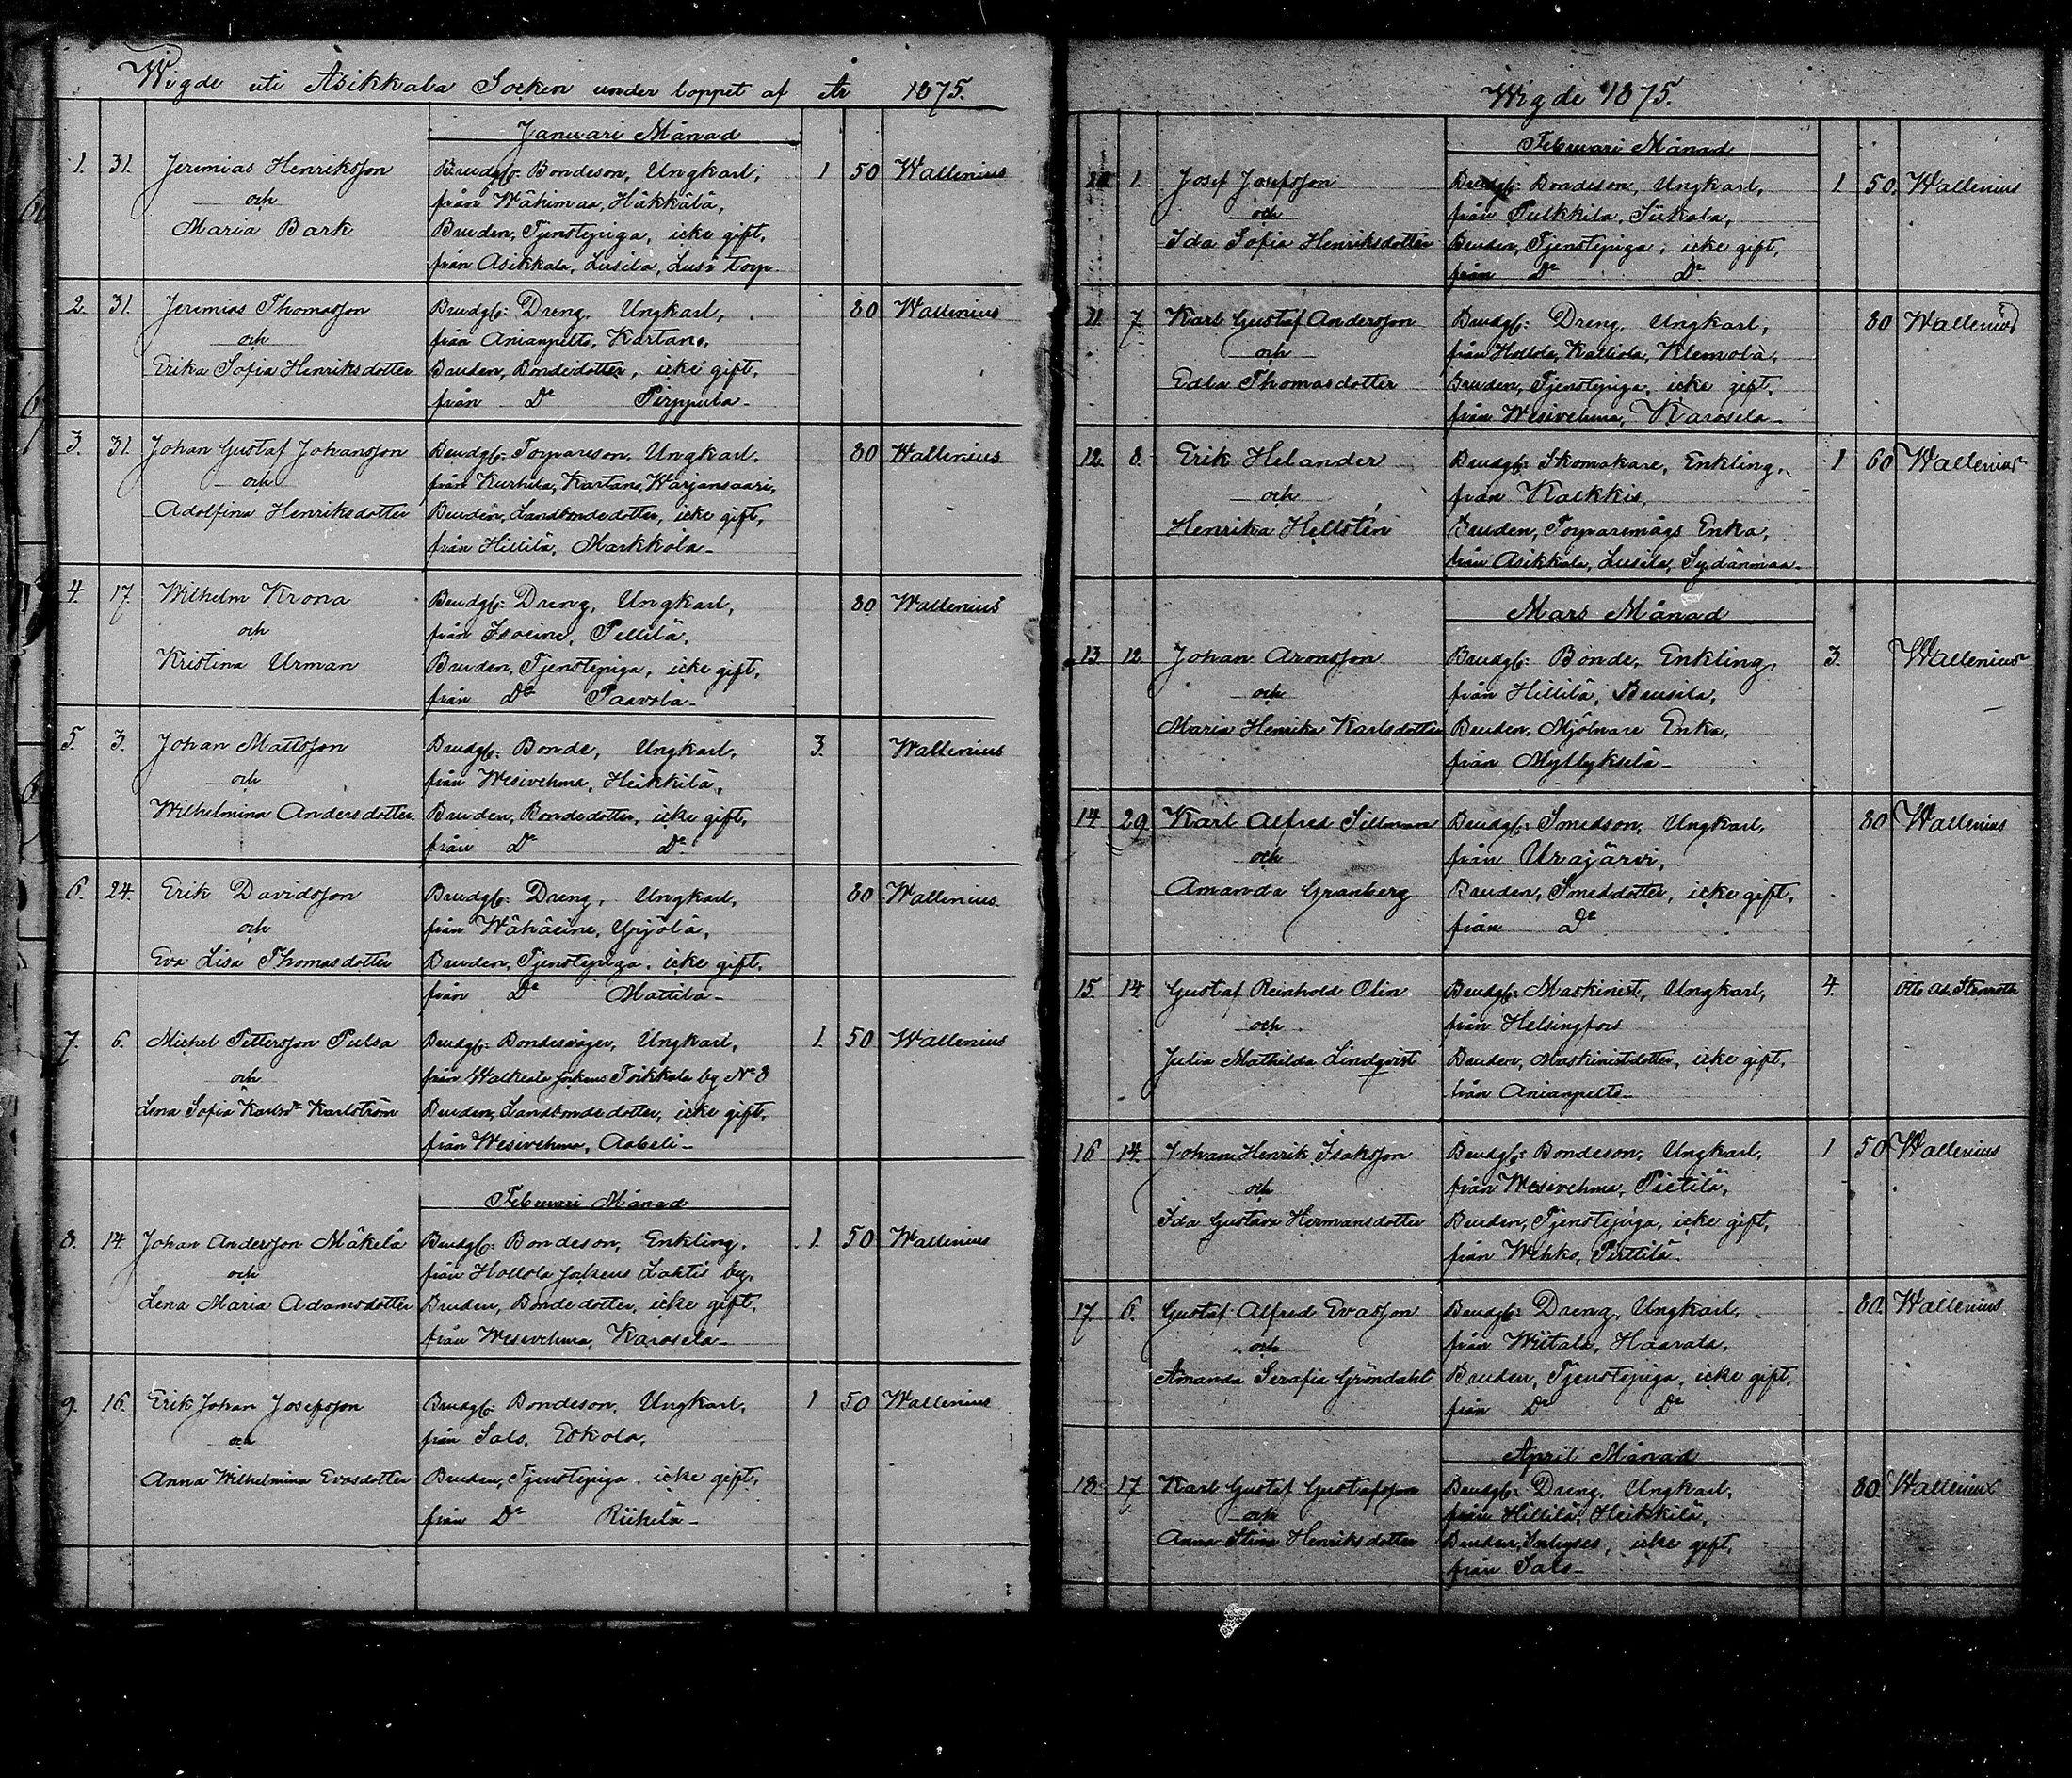 Wigde uti Asikkala Socken under loppet af År 1875.
Januari Månad
1. 31. Jeremias Henriksson Brudg: Bondeson, Ungkarl, 1 50 Wallenius
och från Wähimaa, Häkkälä,
Maria Bark Bruden, Tjenstepiga, icke gift,
från Asikkala, Lusila, Lusi torp
2. 31. Jeremias Thomasson Brudg: Dreng, Ungkarl, 80 Wallenius
och från Anianpelto, Kartano,
Erika Sofia Henriksdotter Bruden, Bondedotter, icke gift,
från Do Pirppula
3. 31. Johan Gustaf Johansson Brudg: Torpareson, Ungkarl, 80 Wallenius
och från Kurhila, Kartano, Warjansaari,
Adolfina Henriksdotter Bruden, Landbondedotter, icke gift,
från Hillilä, Markkola
4. 17. Wilhelm Krona Brudg: Dreng, Ungkarl, 80 Wallenius
och från Isoeine, Pellilä,
Kristina Urman Bruden, Tjenstepiga, icke gift,
från Do Paavola
5. 3. Johan Mattsson Brudg: Bonde, Ungkarl, 3. Wallenius
och från Wesivehma, Heikkilä,
Wilhelmina Andersdotter Bruden, Bondedotter, icke gift,
från Do Do
6. 24. Erik Davidsson Brudg: Dreng, Ungkarl, 80 Wallenius
och från Wähäeine, Yrjölä,
Eva Lisa Thomasdotter Bruden, Tjenstepiga, icke gift,
från Do Mattila
7. 6. Michel Pettersson Pulsa Brudg: Bondesvåger, Ungkarl, 1. 50 Wallenius
och från Walkeala sockens Toikkala by No 8
Lena Sofia Karlsdr Karlström Bruden, Landbondedotter, icke gift,
från Wesivehma, Aabeli
Februari Månad
8. 14. Johan Andersson Mäkelä Brudg: Bondeson, Enkling, 1. 50 Wallenius
och från Hollola sockens Lahtis by,
Lena Maria Adamsdotter Bruden, Bondedotter, icke gift,
från Wesivehma, Karosela
9. 16. Erik Johan Josefsson Brudg: Bondeson, Ungkarl, 1 50 Wallenius
och från Salo, Eskola,
Anna Wilhelmina Evasdotter Bruden, Tjenstepiga, icke gift,
från Do Riihelä
Wigde 1875.
Februari Månad
10 1. Josef Josefsson Brudg: Bondeson, Ungkarl, 1 50. Wallenius
och från Pulkkila, Siikala,
Ida Sofia Henriksdotter Bruden, Tjenstepiga, icke gift,
från Do Do
11. 7. Karl Gustaf Andersson Brudg: Dreng, Ungkarl, 80 Wallenius
och från Hollola, Kalliola, Klemola,
Edla Thomasdotter Bruden, Tjenstepiga, icke gift,
från Wesivehma, Karosela
12. 8. Erik Helander Brudg: Skomakare, Enkling, 1 60 Wallenius
och från Kalkkis,
Henrika Hellstén Bruden, Torparemågs Enka,
från Asikkala, Lusila, Sydänmaa
Mars Månad
13. 12 Johan Aronsson Brudg: Bonde, Enkling, 3. Wallenius
och från Hillilä, Brusila,
Maria Henrika Karlsdotter Bruden, Mjölnare Enka,
från Myllykselä
14 29 Karl Alfred Sillman Brudg: Smedson, Ungkarl, 80 Wallenius
och från Urajärvi,
Amanda Granberg Bruden, Smeddotter, icke gift,
från Do
15. 14. Gustaf Reinhold Olin Brudg: Maskinist, Ungkarl, 4. Otto Ad. Stenroth
och från Helsingfors
Julia Mathilda Lindqvist Bruden, Maskinistdotter, icke gift,
från Anianpelto
16 14. Johan Henrik Isaksson Brudg: Bondeson, Ungkarl, 1 50 Wallenius
och från Wesivehma, Pietilä,
Ida Gustava Hermansdotter Bruden, Tjenstepiga, icke gift,
från Wehko, Pirttilä
17. 6. Gustaf Alfred Evasson Brudg: Dreng, Ungkarl, 80. Wallenius
och från Wiitala, Haavala,
Amanda Serafia Gröndahl Bruden, Tjenstepiga, icke gift,
från Do Do
April Månad
18. 17. Karl Gustaf Gustafsson Brudg: Dreng, Ungkarl, 80. Wallenius
och från Hillilä, Heikkilä,
Anna Stina Henriksdotter Bruden, Inhyses, icke gift,
från Salo